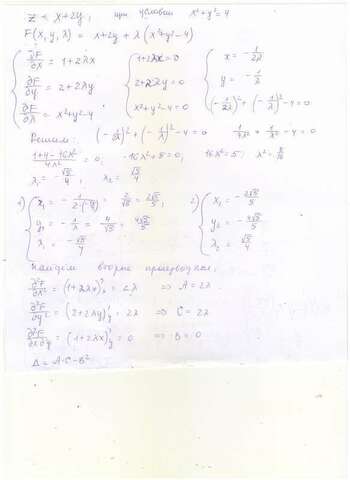 z = x+2y, при условии x²+y²=4
F(x, y, λ) = x+2y + λ(x²+y²-4)
{ ∂F/∂x = 1+2λx { 1+2λx=0 { x = -1/2λ
{ ∂F/∂y = 2+2λy { 2+2λy=0 { y = -1/λ
{ ∂F/∂λ = x²+y²-4 { x²+y²-4=0 { (-1/2λ)²+(-1/λ)²-4=0
Решим: (-1/2λ)²+(-1/λ)²-4=0 1/4λ²+1/λ²-4=0
(1+4-16λ²)/4λ² = 0; -16λ²+5=0; 16λ²=5 λ²=5/16
λ₁ = -√5/4, λ₂ = √5/4
1) { x₁ = -1/(2·(-√5/4)) = 2/√5 = 2√5/5; 2) { x₂ = -2√5/5
{ y₁ = -1/λ = 4/√5 = 4√5/5 { y₂ = -4√5/5
{ λ₁ = -√5/4 { λ₂ = √5/4
Найдем вторые производные:
∂²F/∂x² = (1+2λx)'ₓ = 2λ ⇒ A=2λ
∂²F/∂y² = (2+2λy)'ᵧ = 2λ ⇒ C=2λ
∂²F/∂x∂y = (1+2λx)'ᵧ = 0 ⇒ B=0
Δ = A·C-B²